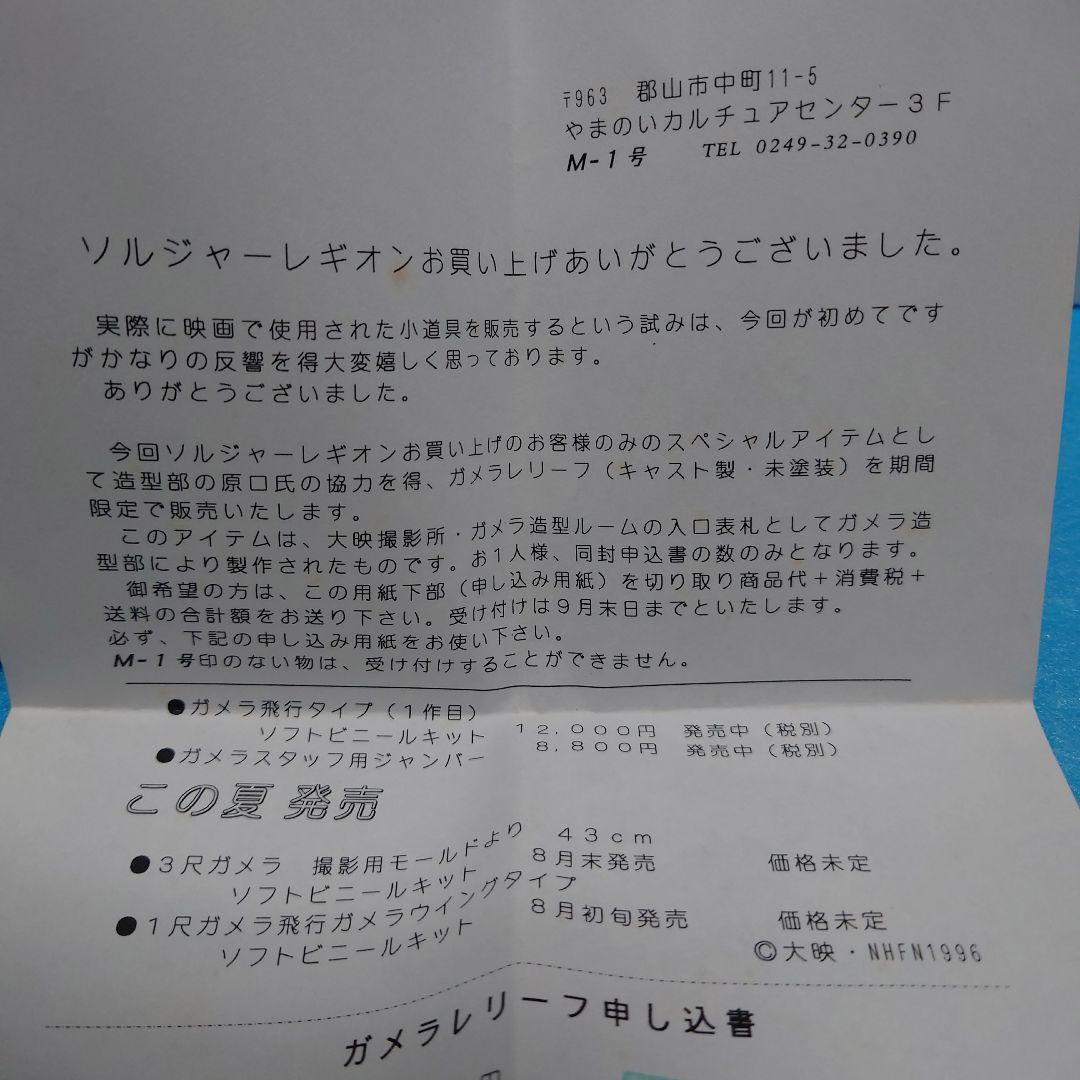 〒963 郡山市中町11-5
やまのいカルチュアセンター3F
M-1号 TEL 0249-32-0390
ソルジャーレギオンお買い上げあいがとうございました。
実際に映画で使用された小道具を販売するという試みは、今回が初めてです
がかなりの反響を得大変嬉しく思っております。
ありがとうございました。
今回ソルジャーレギオンお買い上げのお客様のみのスペシャルアイテムとし
て造型部の原口氏の協力を得、ガメラレリーフ(キャスト製・未塗装)を期間
限定で販売いたします。
このアイテムは、大映撮影所・ガメラ造型ルームの入口表札としてガメラ造
型部により製作されたものです。お1人様、同封申込書の数のみとなります。
御希望の方は、この用紙下部(申し込み用紙)を切り取り商品代+消費税+
送料の合計額をお送り下さい。受け付けは9月末日までといたします。
必ず、下記の申し込み用紙をお使い下さい。
M-1号印のない物は、受け付けすることができません。
●ガメラ飛行タイプ(1作目)
ソフトビニールキット 12,000円 発売中(税別)
●ガメラスタッフ用ジャンバー 8,800円 発売中(税別)
この夏 発売
●3尺ガメラ 撮影用モールドより 43cm
ソフトビニールキット 8月末発売 価格未定
●1尺ガメラ飛行ガメラウイングタイプ
ソフトビニールキット 8月初旬発売 価格未定
©大映・NHFN1996
ガメラレリーフ申し込書